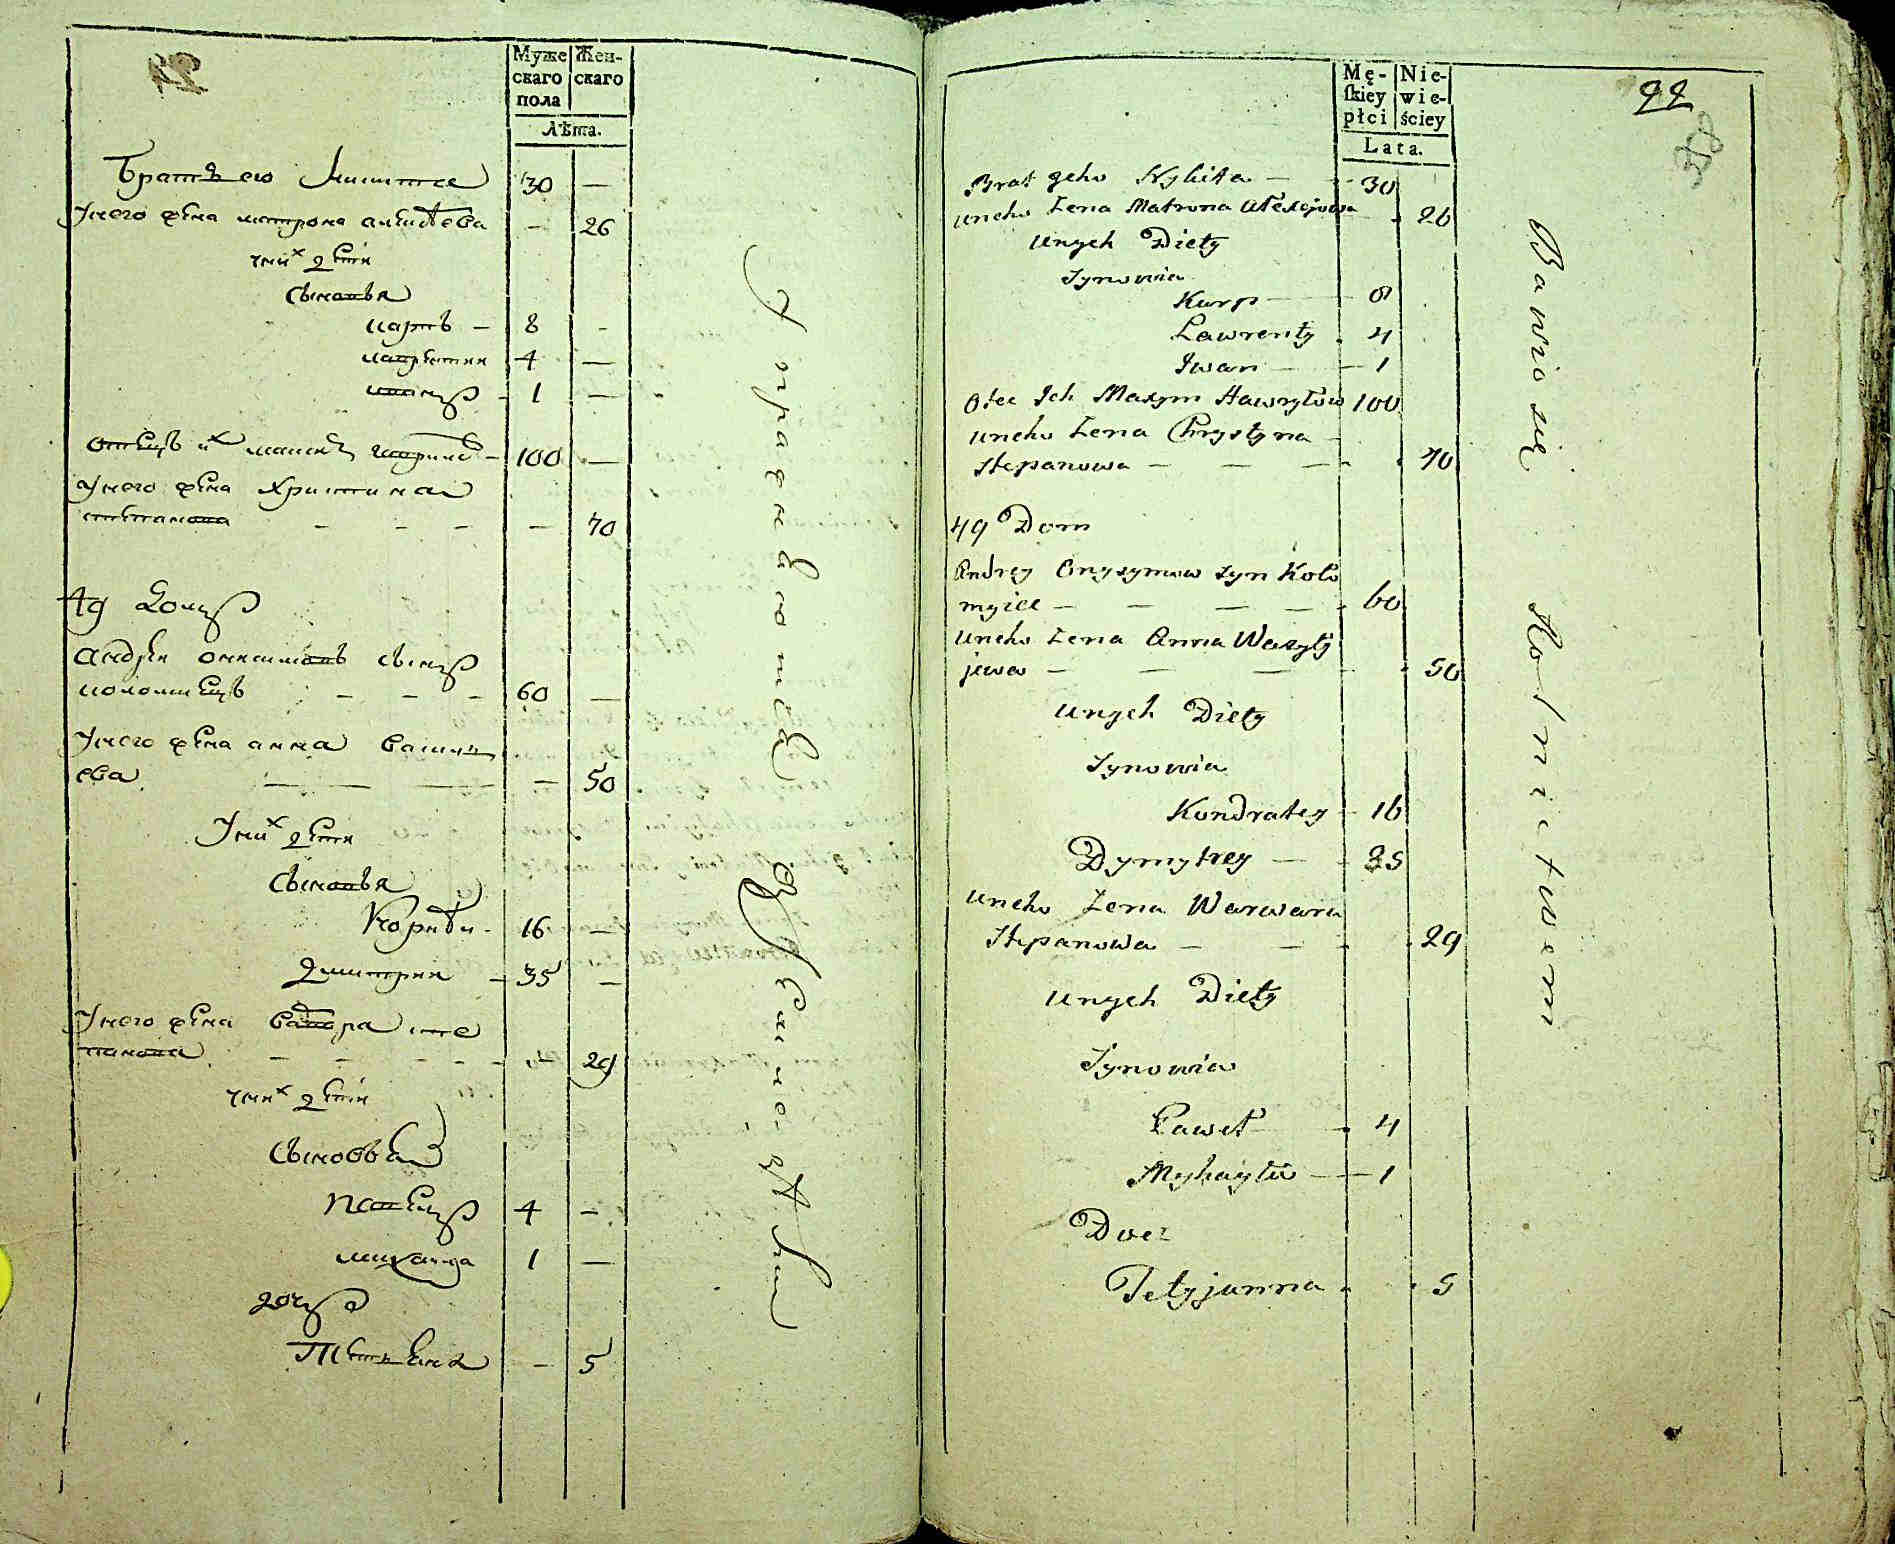 Муже
скаго
пола
Жен-
скаго
Лѣта.
Братъ его Никита 30 —
У него жена матрона алексѣева — 26
у них дѣти
Сыновья
карпъ — 8 -
лаврентии 4 —
иванъ - 1 —
отецъ их максимъ гаврилов - 100 —
У него жена Христина
степанова - - - — 70
49 домъ
андрѣи онисимовъ сынъ
коломиецъ - - - 60 —
У него жена анна васил
ева — — — 50
У них дѣти
Сыновья
16 —
димитрии - 35 —
У него жена варвара сте
панова - - - - — 29
у них дѣти
Сыновья
павелъ 4 -
михаила 1 —
дочь
Тетьяна — 5
Упражняется
Mę-
skiey
płci
Nie-
wie-
ściey
Lata.
22
Brat jeho Nykita — 30
uneho Żena Matrona Ałexejowa 26
unych Diety
Synowia
Karp — 8
Ławrenty 4
Iwan — 1
Otec Ich Maxym Hawryłow 100
uneho Żena Chrystyna -
Stepanowa — — — 70
49 Dom
Andrey Onysymow syn Koło
myiec — — — — 60
uneho Żena Anna Wasyly
jewa — — — 50
unych Diety
Synowia
Kondratey - 16
Dymytrey — 35
uneho Żena Warwara
Stepanowa — — - 29
unych Diety
Synowia
Paweł 4
Myhayło — 1
Docz
Tetyjanna 5
Bawio się Rolnictwem